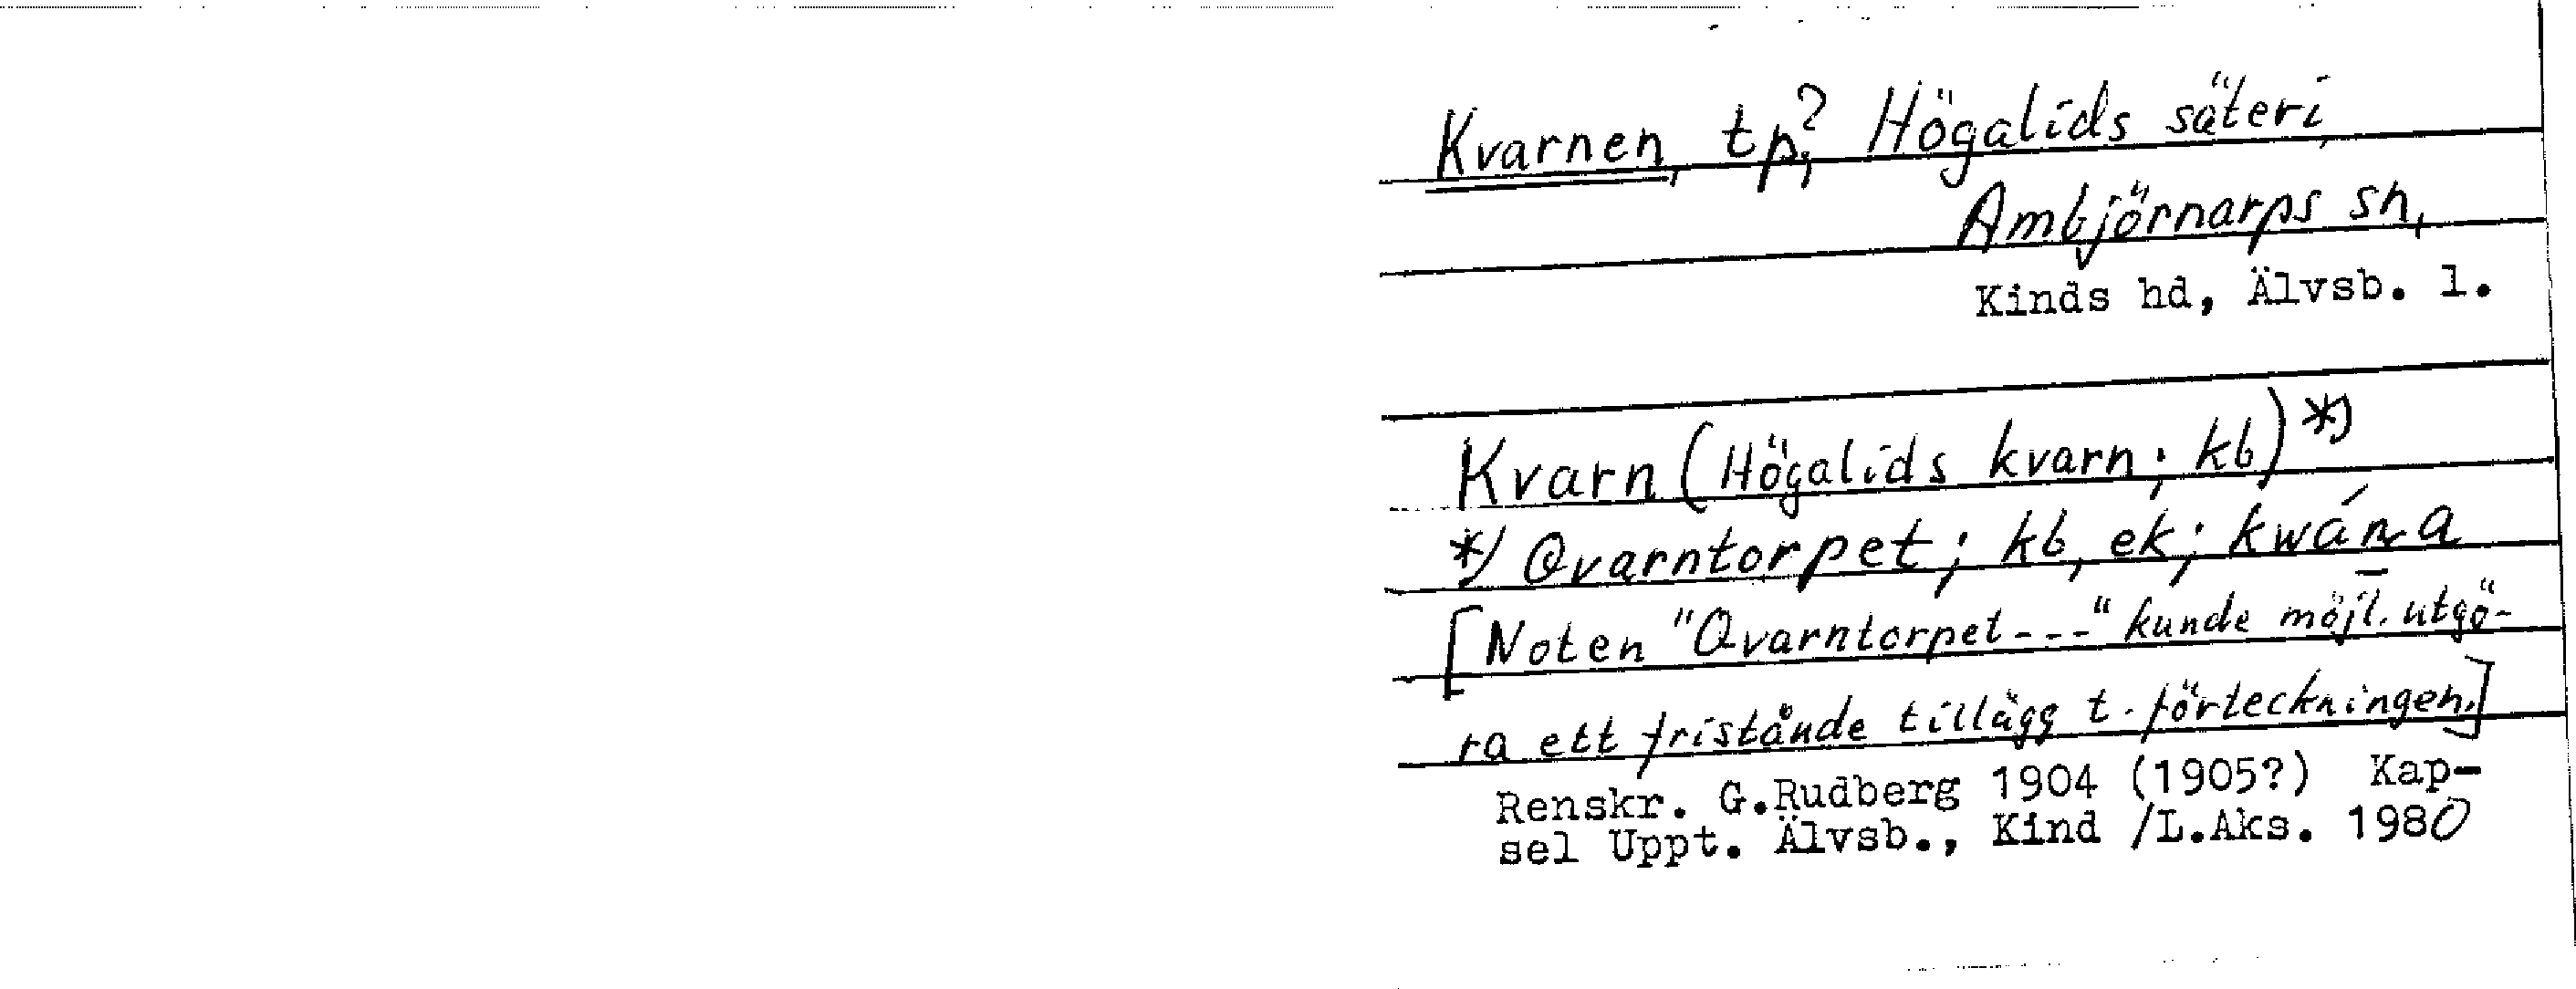 Kvarnen, tp?; Högalids säteri,
Ambjörnarps sn,
Kinds hd, Älvsb. l.
Kvarn (Högalids kvarn; kb) *)
*) Qvarntorpet; kb, ek; kwán̲a
[Noten "Qvarntorpet---" kunde möjl. utgö-
ra ett fristånde tillägg t. förteckningen.]
Renskr. G.Rudberg 1904 (1905?) Kap-
sel Uppt. Älvsb., Kind /L.Aks. 1980